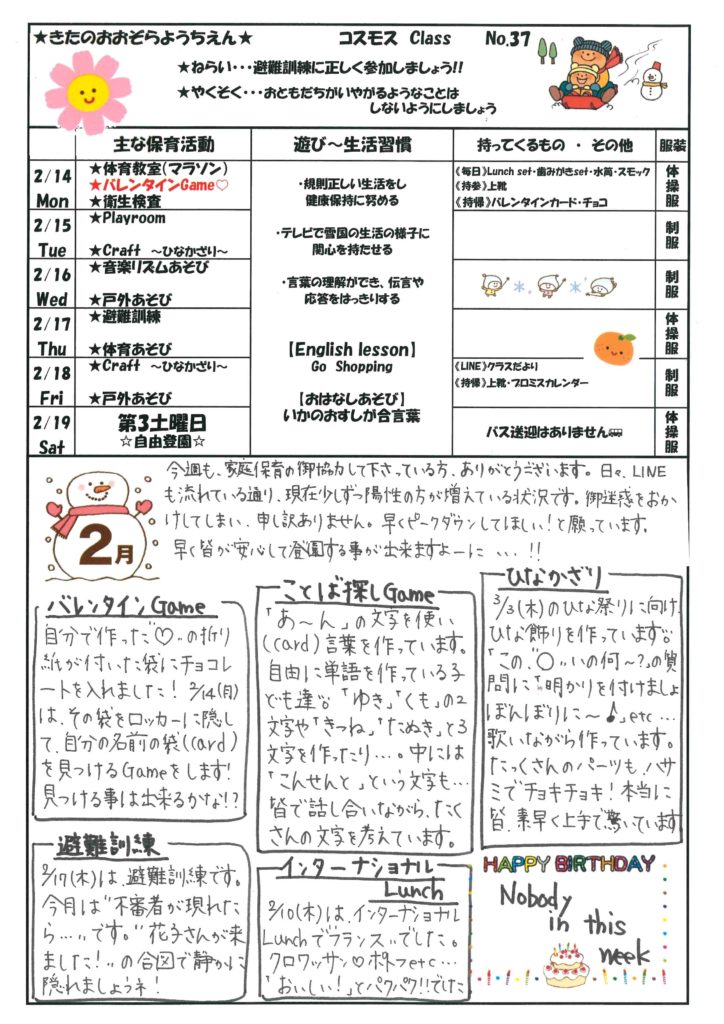 ★きたのおおぞらようちえん★ コスモス Class No.37
★ねらい・・・避難訓練に正しく参加しましょう!!
★やくそく・・・おともだちがいやがるようなことは
しないようにしましょう
主な保育活動 遊び～生活習慣 持ってくるもの ・ その他 服装
2/14 Mon
★体育教室(マラソン)
★バレンタインGame♡
★衛生検査
《毎日》Lunch set・歯みがきset・水筒・スモック
《持参》上靴
《持帰》バレンタインカード・チョコ
体操服
2/15 Tue
★Playroom
★Craft ～ひなかざり～
制服
2/16 Wed
★音楽リズムあそび
★戸外あそび
制服
2/17 Thu
★避難訓練
★体育あそび
体操服
2/18 Fri
★Craft ～ひなかざり～
★戸外あそび
《LINE》クラスだより
《持帰》上靴・プロミスカレンダー
制服
2/19 Sat
第3土曜日
☆自由登園☆
バス送迎はありません🚌
体操服
・規則正しい生活をし
健康保持に努める
・テレビで雪国の生活の様子に
関心を持たせる
・言葉の理解ができ、伝言や
応答をはっきりする
【English lesson】
Go Shopping
【おはなしあそび】
いかのおすしが合言葉
2月
今週も、家庭保育の御協力して下さっている方、ありがとうございます。日々、LINE
も流れている通り、現在少しずつ陽性の方が増えている状況です。御迷惑をおか
けしてしまい、申し訳ありません。早くピークダウンしてほしい！と願っています。
早く皆が安心して登園する事が出来ますよーに …!!
バレンタインGame
自分で作った"♡"の折り
紙が付いた袋にチョコレ
ートを入れました！2/14(月)
は、その袋をロッカーに隠し
て、自分の名前の袋(Card)
を見つけるGameをします！
見つける事は出来るかな!?
ことば探しGame
「あ～ん」の文字を使い
(Card)言葉を作っています。
自由に単語を作っている子
ども達〟「ゆき」「くも」の2
文字や「きつね」「たぬき」と3
文字を作ったり…。中には
「こんせんと」という文字も…
皆で話し合いながら、たく
さんの文字を考えています。
ひなかざり
3/3(木)のひな祭りに向け、
ひな飾りを作っています〟
「この"○"いの何～?」の質
問に「明かりを付けましょ
ぼんぼりに～♪」etc…
歌いながら作っています。
たっくさんのパーツも、ハサ
ミでチョキチョキ！本当に
皆、素早く上手で驚いています
避難訓練
2/17(木)は、避難訓練です。
今月は"不審者が現れた
ら…"です。"花子さんが来
ました！"の合図で静かに
隠れましょうネ！
インターナショナル
Lunch
2/10(木)は、インターナショナル
Lunchで"フランス"でした。
クロワッサン♡ポトフetc…
「おいしい！」とパクパク!!でした
HAPPY BIRTHDAY
Nobody
in this
week